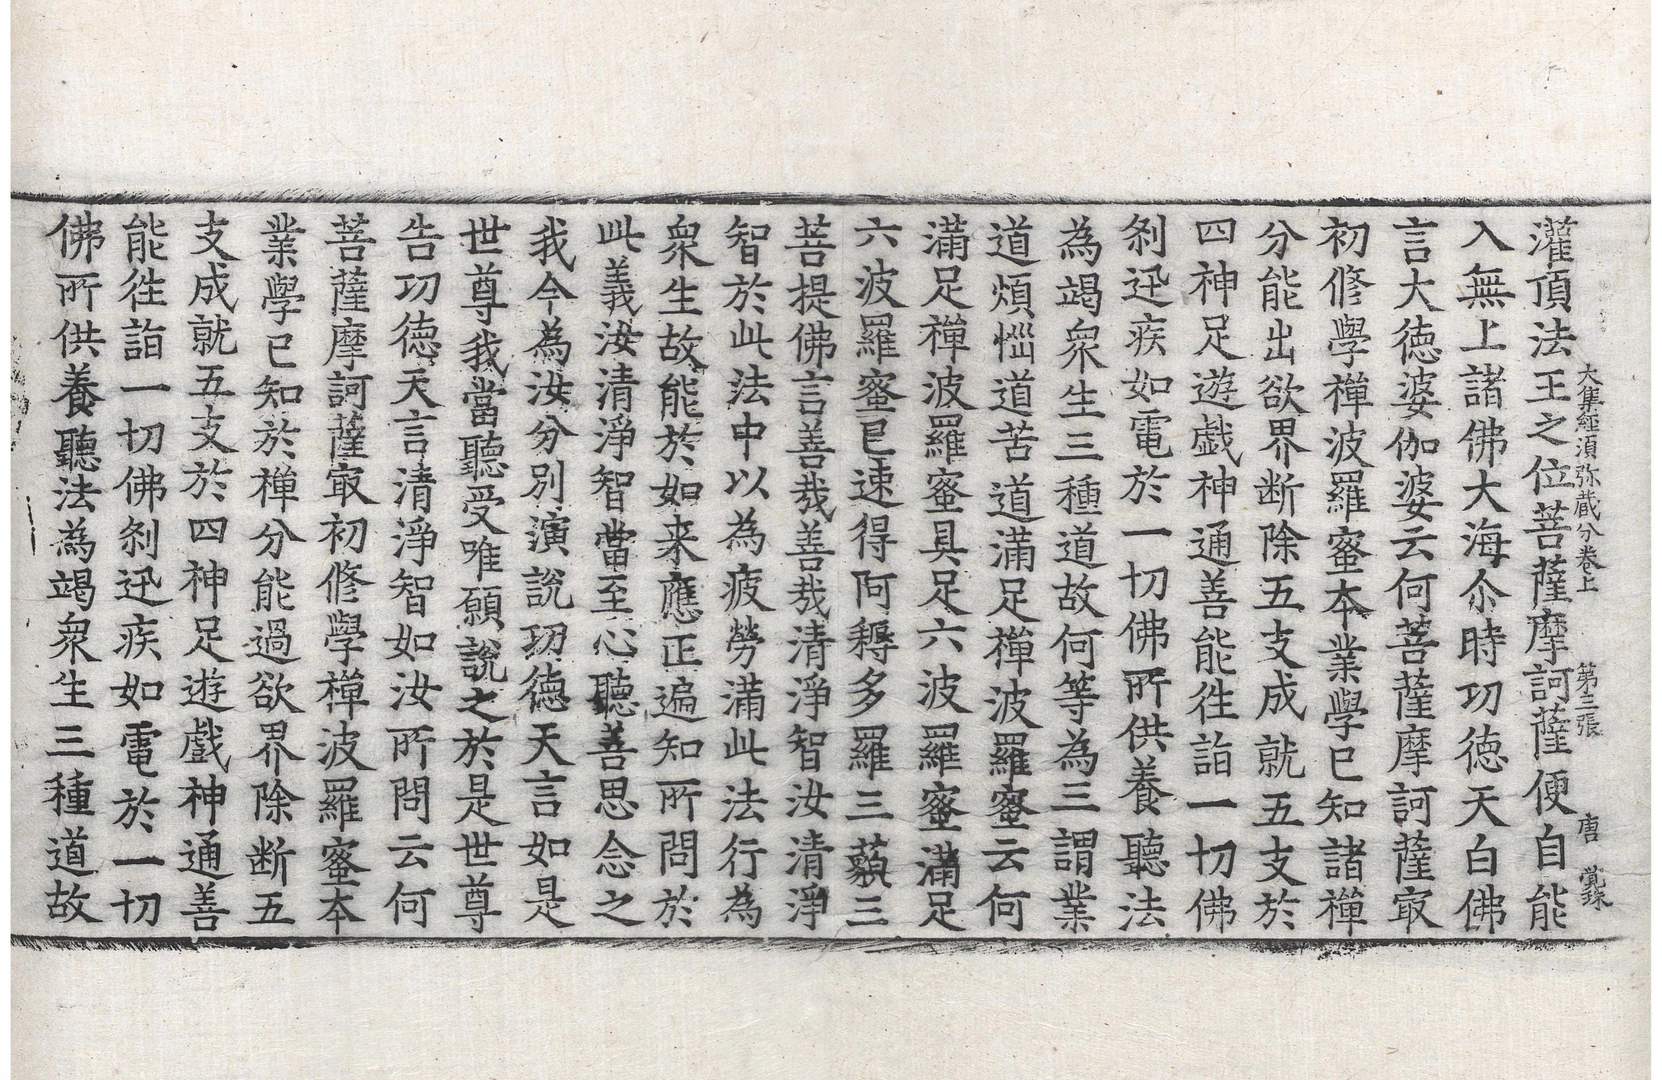 大集經須弥藏分卷上　第三張　唐　覚珎
灌頂法王之位菩薩摩訶薩便自能
入無上諸佛大海尒時功德天白佛
言大德婆伽婆云何菩薩摩訶薩冣
初修學禪波羅蜜本業學已知諸禪
分能出欲界断除五支成就五支於
四神足遊戯神通善能往詣一切佛
刹迅疾如電於一切佛所供養聽法
為竭衆生三種道故何等為三謂業
道煩惱道苦道滿足禪波羅蜜云何
滿足禪波羅蜜具足六波羅蜜滿足
六波羅蜜已速得阿耨多羅三藐三
菩提佛言善哉善哉清淨智汝清淨
智於此法中以為疲勞滿此法行為
衆生故能於如来應正遍知所問於
此義汝清淨智當至心聽善思念之
我今為汝分別演說功德天言如是
世尊我當聽受唯願說之於是世尊
告功德天言清淨智如汝所問云何
菩薩摩訶薩冣初修學禪波羅蜜本
業學已知於禪分能過欲界除断五
支成就五支於四神足遊戲神通善
能往詣一切佛刹迅疾如電於一切
佛所供養聽法為竭衆生三種道故